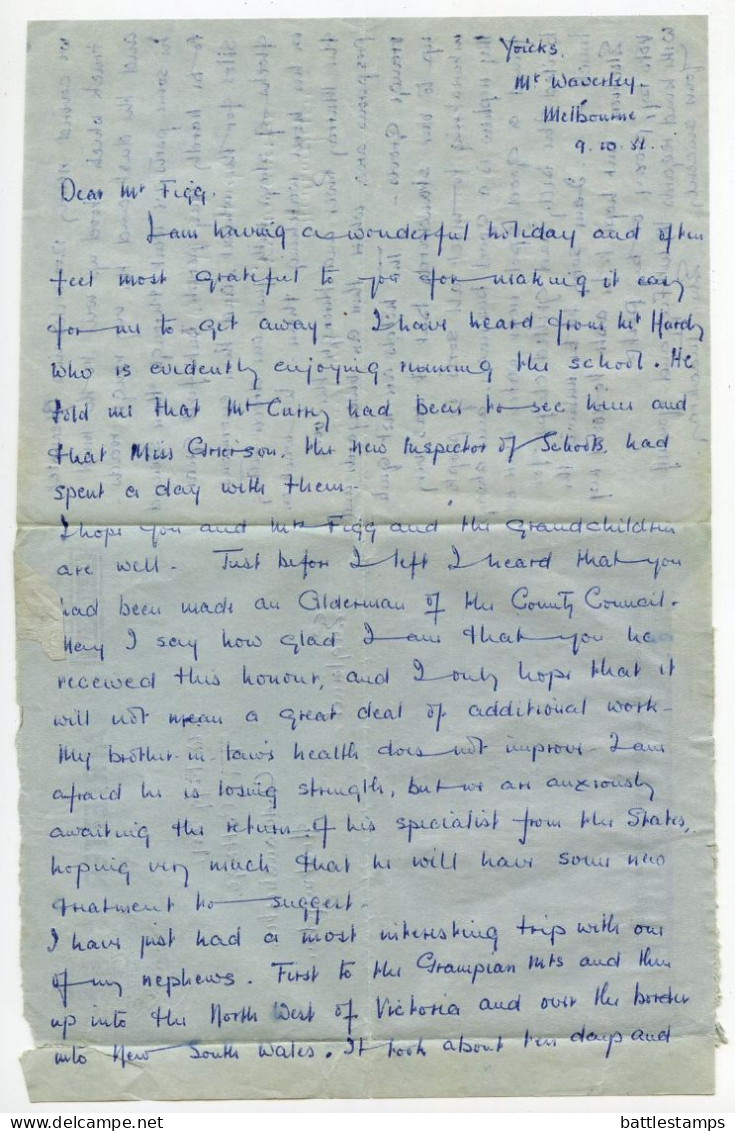 Yoicks.
Mt Waverley.
Melbourne
9.10.51.
Dear Mr Figg.
I am having a wonderful holiday and often
feel most grateful to you for making it easy
for me to get away. I have heard from Mr Hardy
who is evidently enjoying running the school. He
told me that Mr Curry had been to see him and
that Miss Grierson, the new Inspector of Schools, had
spent a day with them.
I hope you and Mrs Figg and the Grandchildren
are well. Just before I left I heard that you
had been made an Alderman of the County Council.
May I say how glad I am that you have
received this honour, and I only hope that it
will not mean a great deal of additional work.
My brother-in-law's health does not improve. I am
afraid he is losing strength, but we are anxiously
awaiting the return of his specialist from the States,
hoping very much that he will have some new
treatment to suggest.
I have just had a most interesting trip with one
of my nephews. First to the Grampian Mts and then
up into the North West of Victoria and over the border
into New South Wales. It took about ten days and
battlestamps